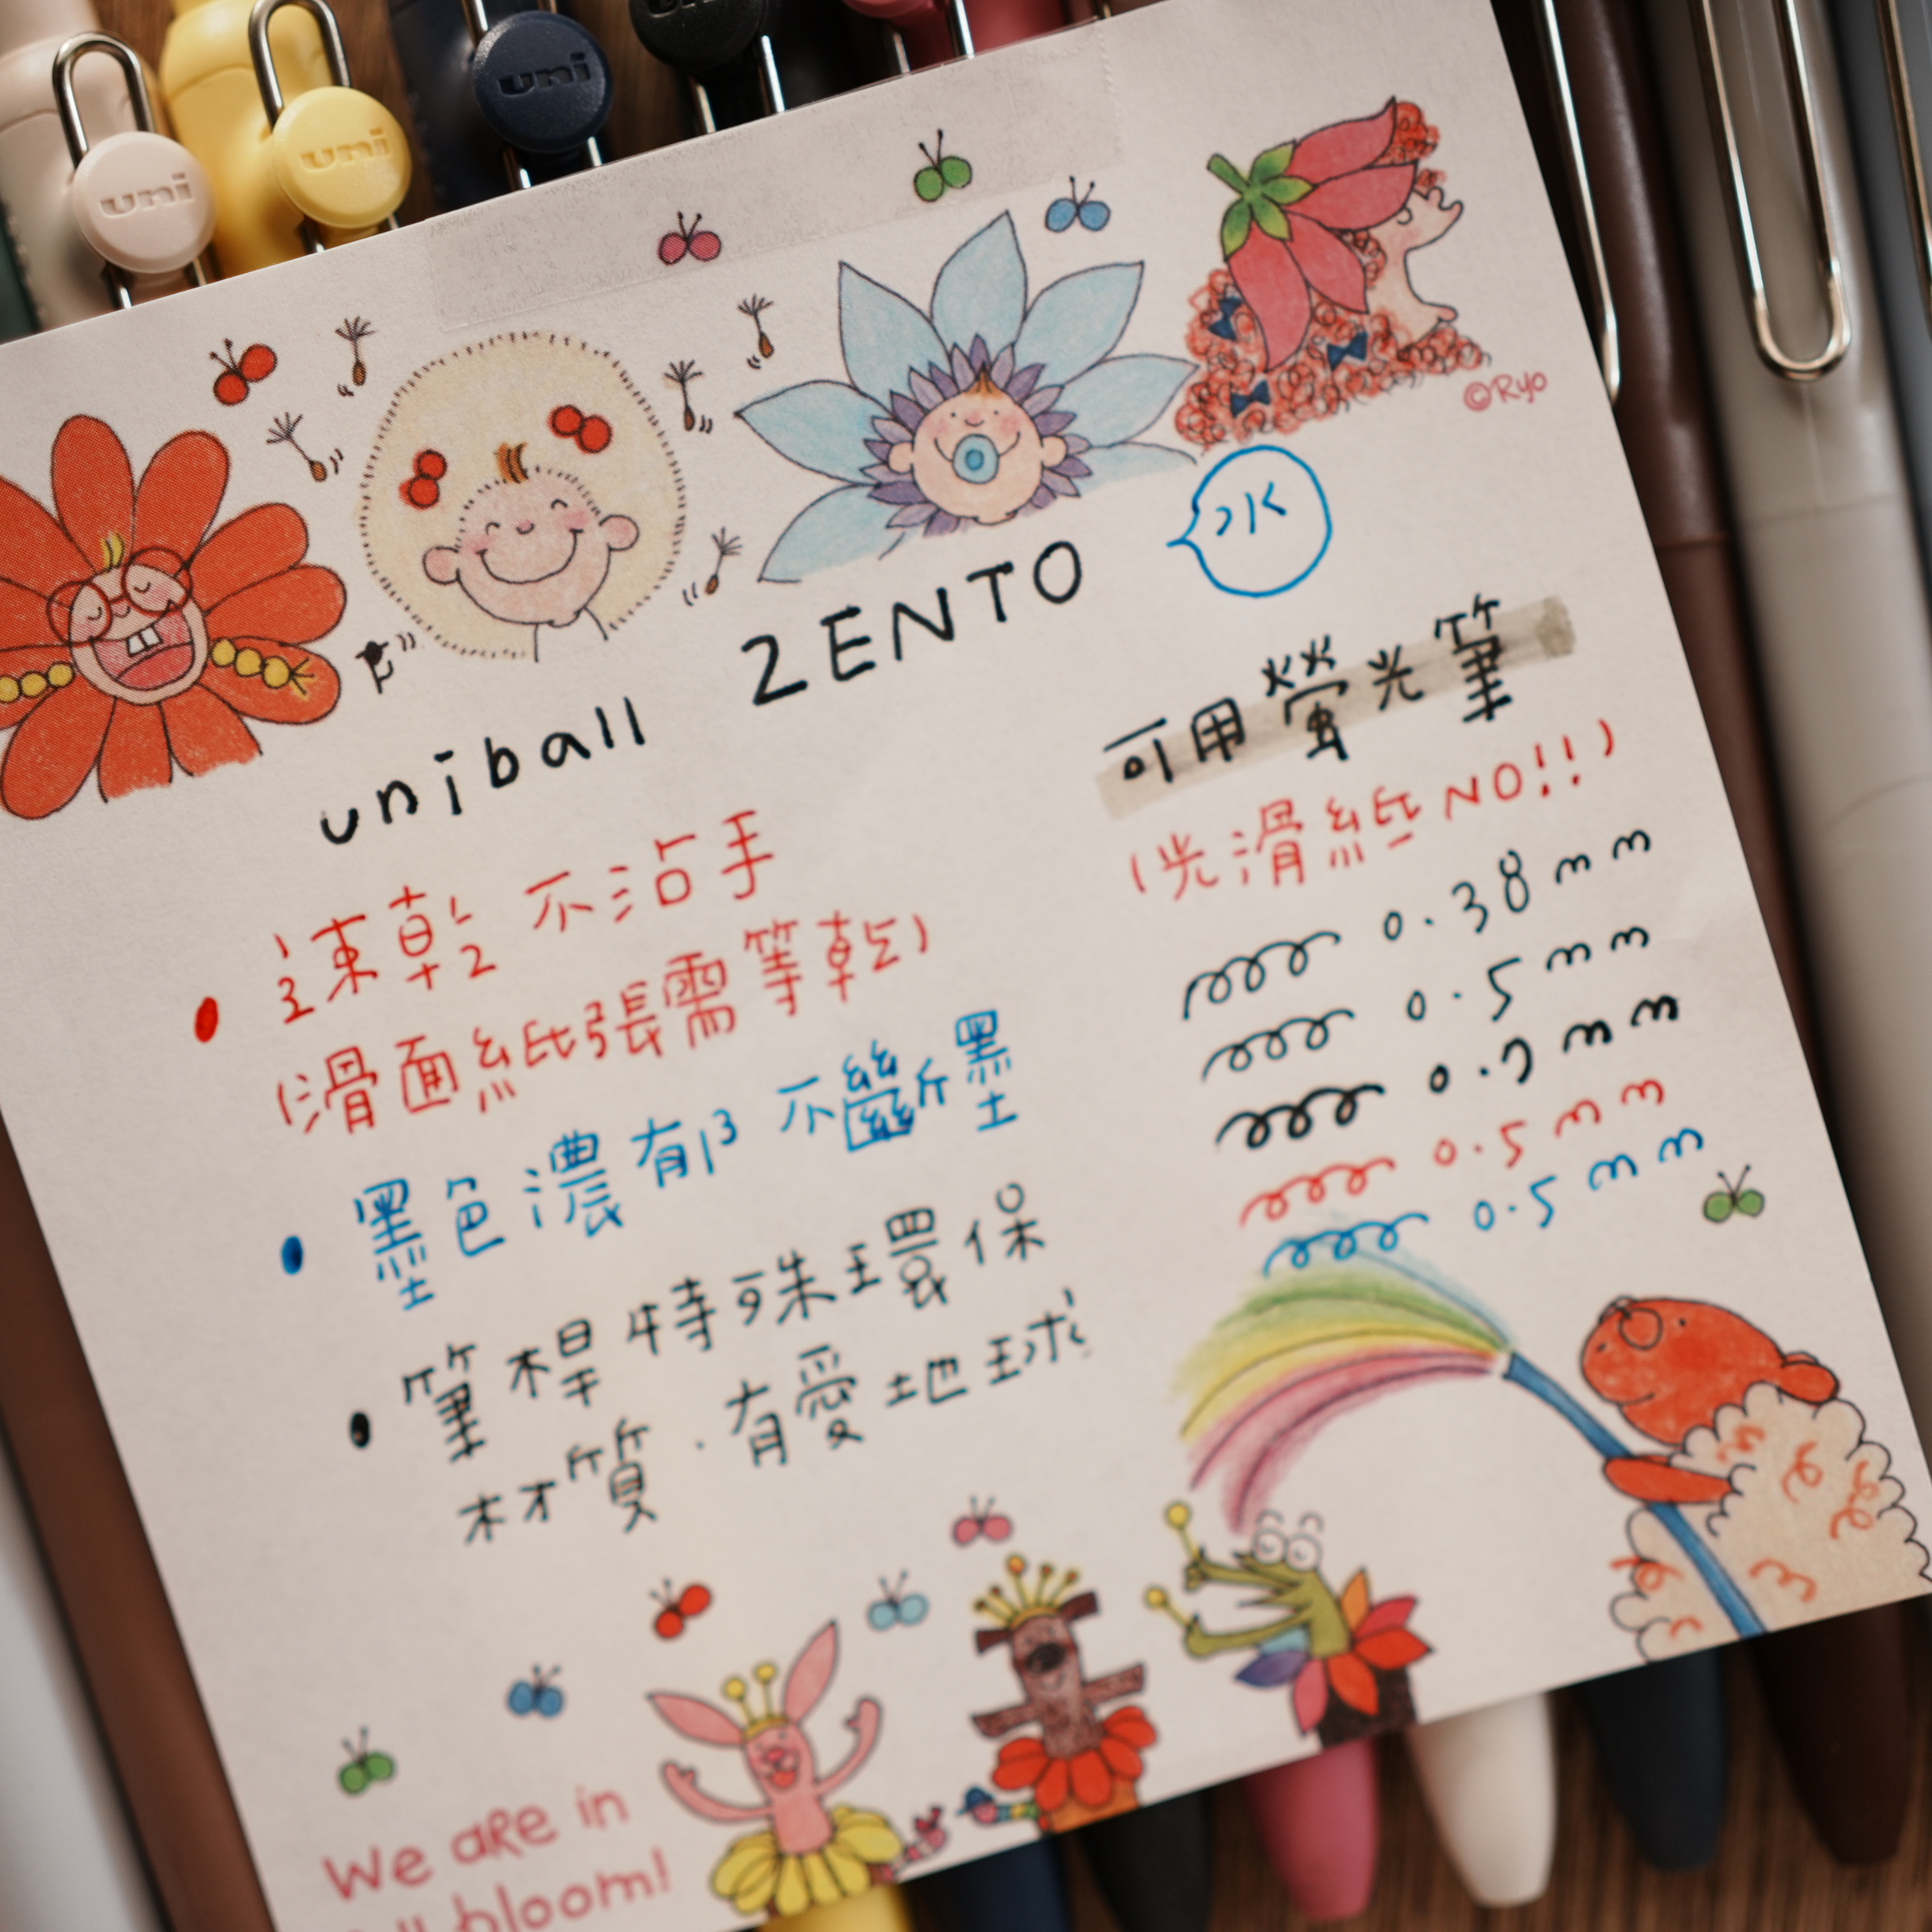 uni
uni
uni
©Ryo
uniball ZENTO
水
速乾 不沾手
(滑面紙張需等乾)
墨色濃郁 不斷墨
筆桿特殊環保
材質．有愛地球
可用螢光筆
(光滑紙NO!!)
0.38mm
0.5mm
0.7mm
0.5mm
0.5mm
We are in
bloom!